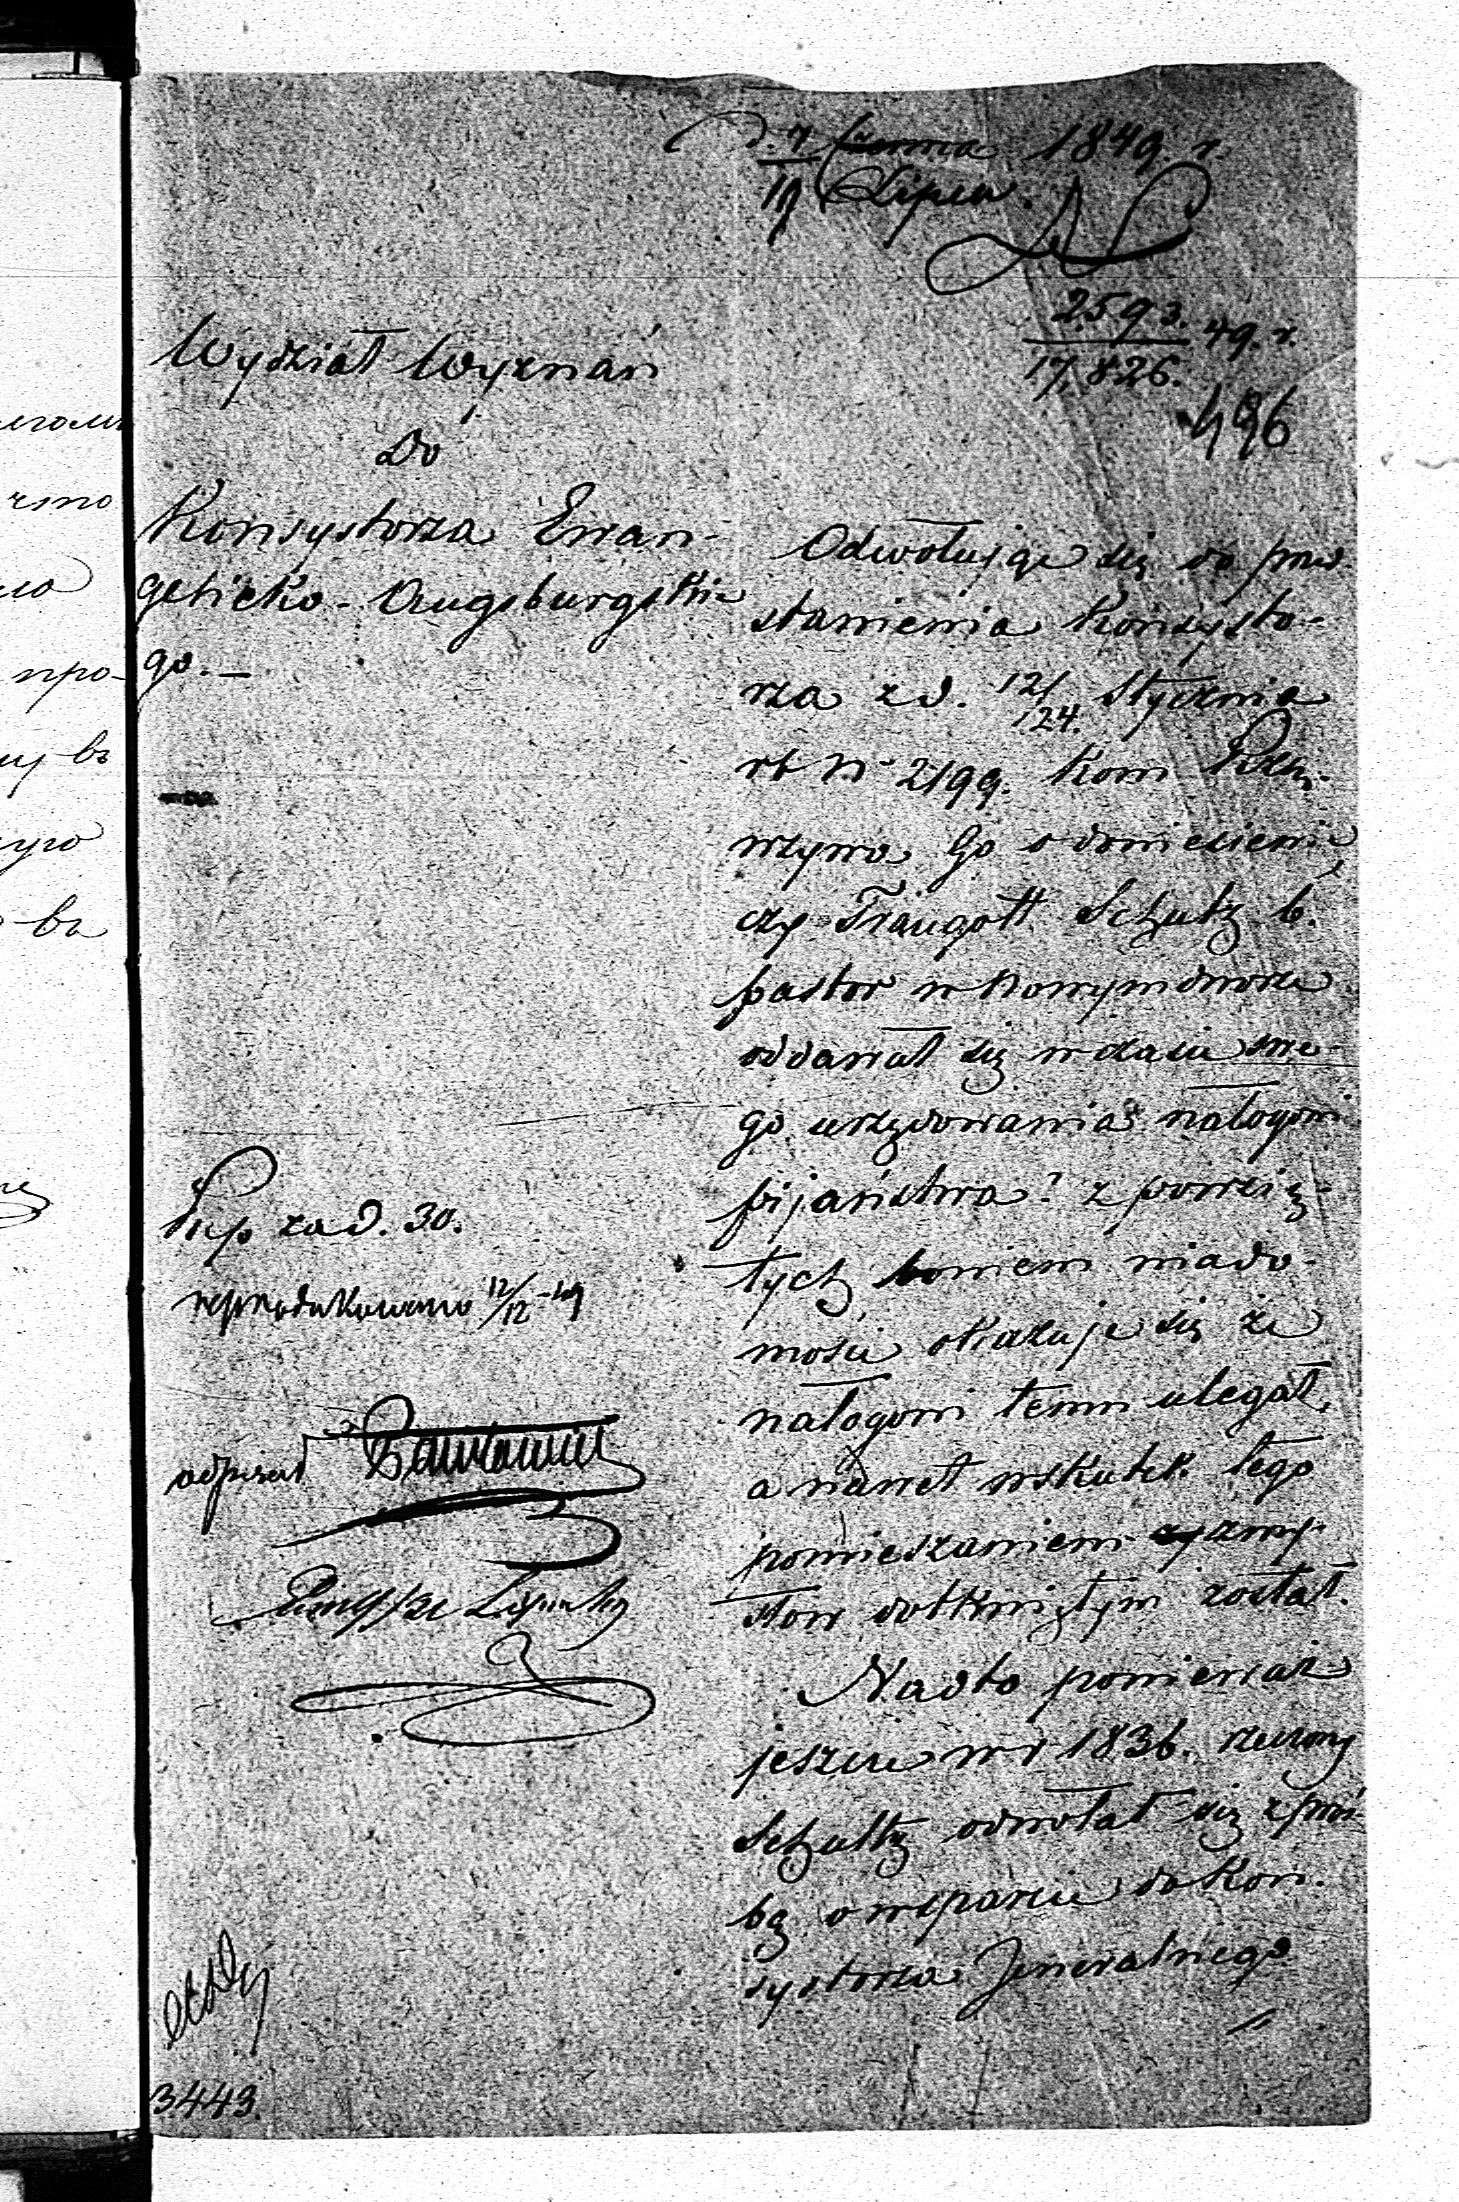 d. 7 Czerwca 1849. r.
19 Lipca.
2593.
17,826. 49. r.
496
Wydział Wyznań
Do
Konsystorza Ewan-
gelicko-Augsburgskie
go.—
Odwołując się do przed-
stawienia Konsysto-
rza z d. 12/24. Stycznia
rb N 2199. Kom
wzywa Go o doniesienie
czy Traugott Schultz b.
pastor w Nowymdworze
oddawał się w czasie swe-
go urzędowania nałogowi
pijaństwa? z powzię-
tych bowiem wiado-
mości okazuje się że
nałogowi temu ulegał,
a nawet wskutek tego
pomieszaniem zmy-
słów dotkniętym został.
Nadto ponieważ
jeszcze w r 1836. rzeczony
Schultz odwołał się z proś-
bą o wsparcie do Kon-
systorza Jeneralnego
za d. 30.
reprodukowano 12/12 - 49
odpisał
3443.